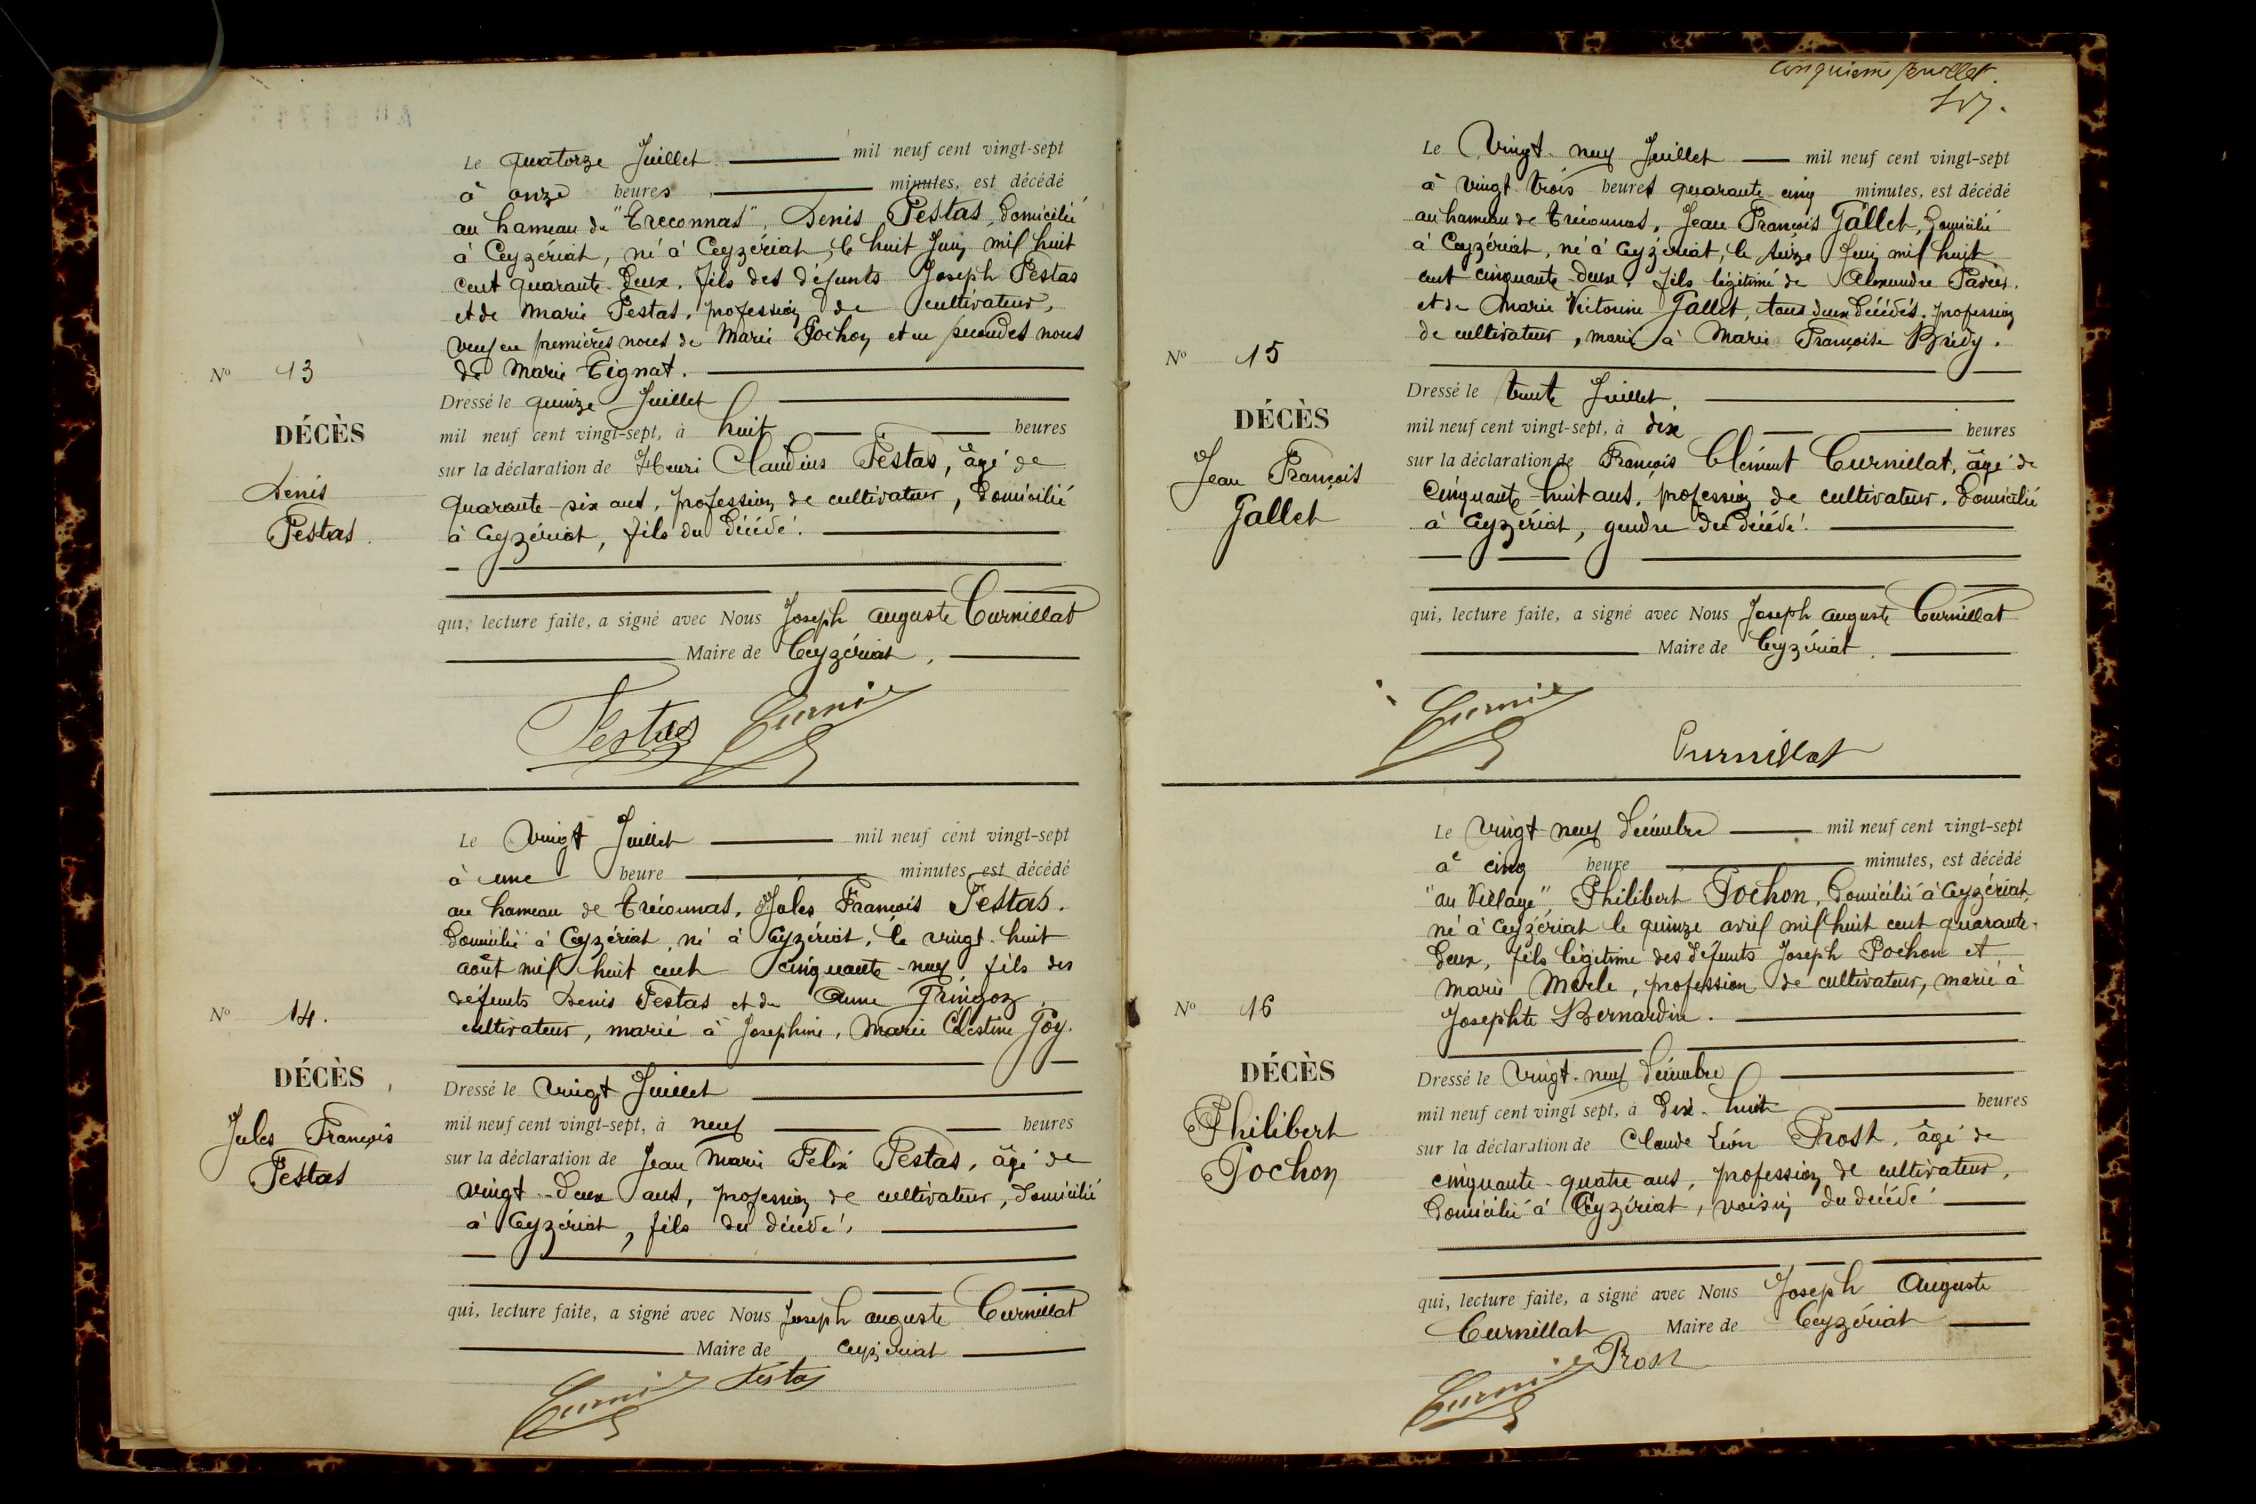 Le quatorze Juillet mil neuf cent vingt-sept
à onze heures minutes, est décédé
au hameau de "Treconnas", Denis Pestas, domicilié
à Ceyzériat, né à Ceyzériat, le huit Juin mil huit
cent quarante-deux, fils des défunts Joseph Pestas
et de Marie Pestas, profession de cultivateur,
veuf en premières noces de Marie Pochon et en secondes noces
de Marie Tignat.
Nº 13
DÉCÈS
Denis
Pestas
Dressé le quinze Juillet
mil neuf cent vingt-sept, à huit heures
sur la déclaration de Henri Claudius Pestas, âgé de
quarante-six ans, profession de cultivateur, domicilié
à Ceyzériat, fils du décédé.
qui, lecture faite, a signé avec Nous Joseph Auguste Curnillat
Maire de Ceyzériat,
Pestas
Le vingt Juillet mil neuf cent vingt-sept
à une heure minutes, est décédé
au hameau de Tréconnas, Jules François Pestas.
domicilié à Ceyzériat, né à Ceyzériat, le vingt-huit
août mil huit cent cinquante-neuf, fils des
défunts Denis Pestas et de Anne Gringoz,
cultivateur, marié à Joséphine, Marie Célestine Goy.
Nº 14.
DÉCÈS
Jules François
Pestas
Dressé le vingt Juillet
mil neuf cent vingt-sept, à neuf heures
sur la déclaration de Jean Marie Félix Pestas, âgé de
vingt-deux ans, profession de cultivateur, domicilié
à Ceyzériat, fils du décédé.
qui, lecture faite, a signé avec Nous Joseph Auguste Curnillat
Maire de Ceyzériat
Pestas
cinquième feuillet.
Le vingt-neuf Juillet mil neuf cent vingt-sept
à vingt-trois heures quarante-cinq minutes, est décédé
au hameau de Tréconnas, Jean François Gallet, domicilié
à Ceyzériat, né à Ceyzériat, le seize Juin mil huit
cent cinquante-deux, fils légitimé de Alexandre
et de Marie Victorine Gallet, tous deux décédés, profession
de cultivateur, marié à Marie Françoise Brédy.
Nº 15
DÉCÈS
Jean François
Gallet
Dressé le trente Juillet,
mil neuf cent vingt-sept, à dix heures
sur la déclaration de François Clément Curnillat, âgé de
cinquante-huit ans, profession de cultivateur, domicilié
à Ceyzériat, gendre du décédé.
qui, lecture faite, a signé avec Nous Joseph Auguste Curnillat
Maire de Ceyzériat
Curnillat
Le vingt-neuf décembre mil neuf cent vingt-sept
à cinq heure minutes, est décédé
"au Village" Philibert Pochon, domicilié à Ceyzériat,
né à Ceyzériat le quinze avril mil huit cent quarante-
deux, fils légitime des défunts Joseph Pochon et
Marie Merle, profession de cultivateur, marié à
Josephte Bernardin.
Nº 16
DÉCÈS
Philibert
Pochon
Dressé le vingt-neuf décembre
mil neuf cent vingt sept, à dix-huit heures
sur la déclaration de Claude Léon Prost, âgé de
cinquante-quatre ans, profession de cultivateur,
domicilié à Ceyzériat, voisin du décédé
qui, lecture faite, a signé avec Nous Joseph Auguste
Curnillat Maire de Ceyzériat
Prost